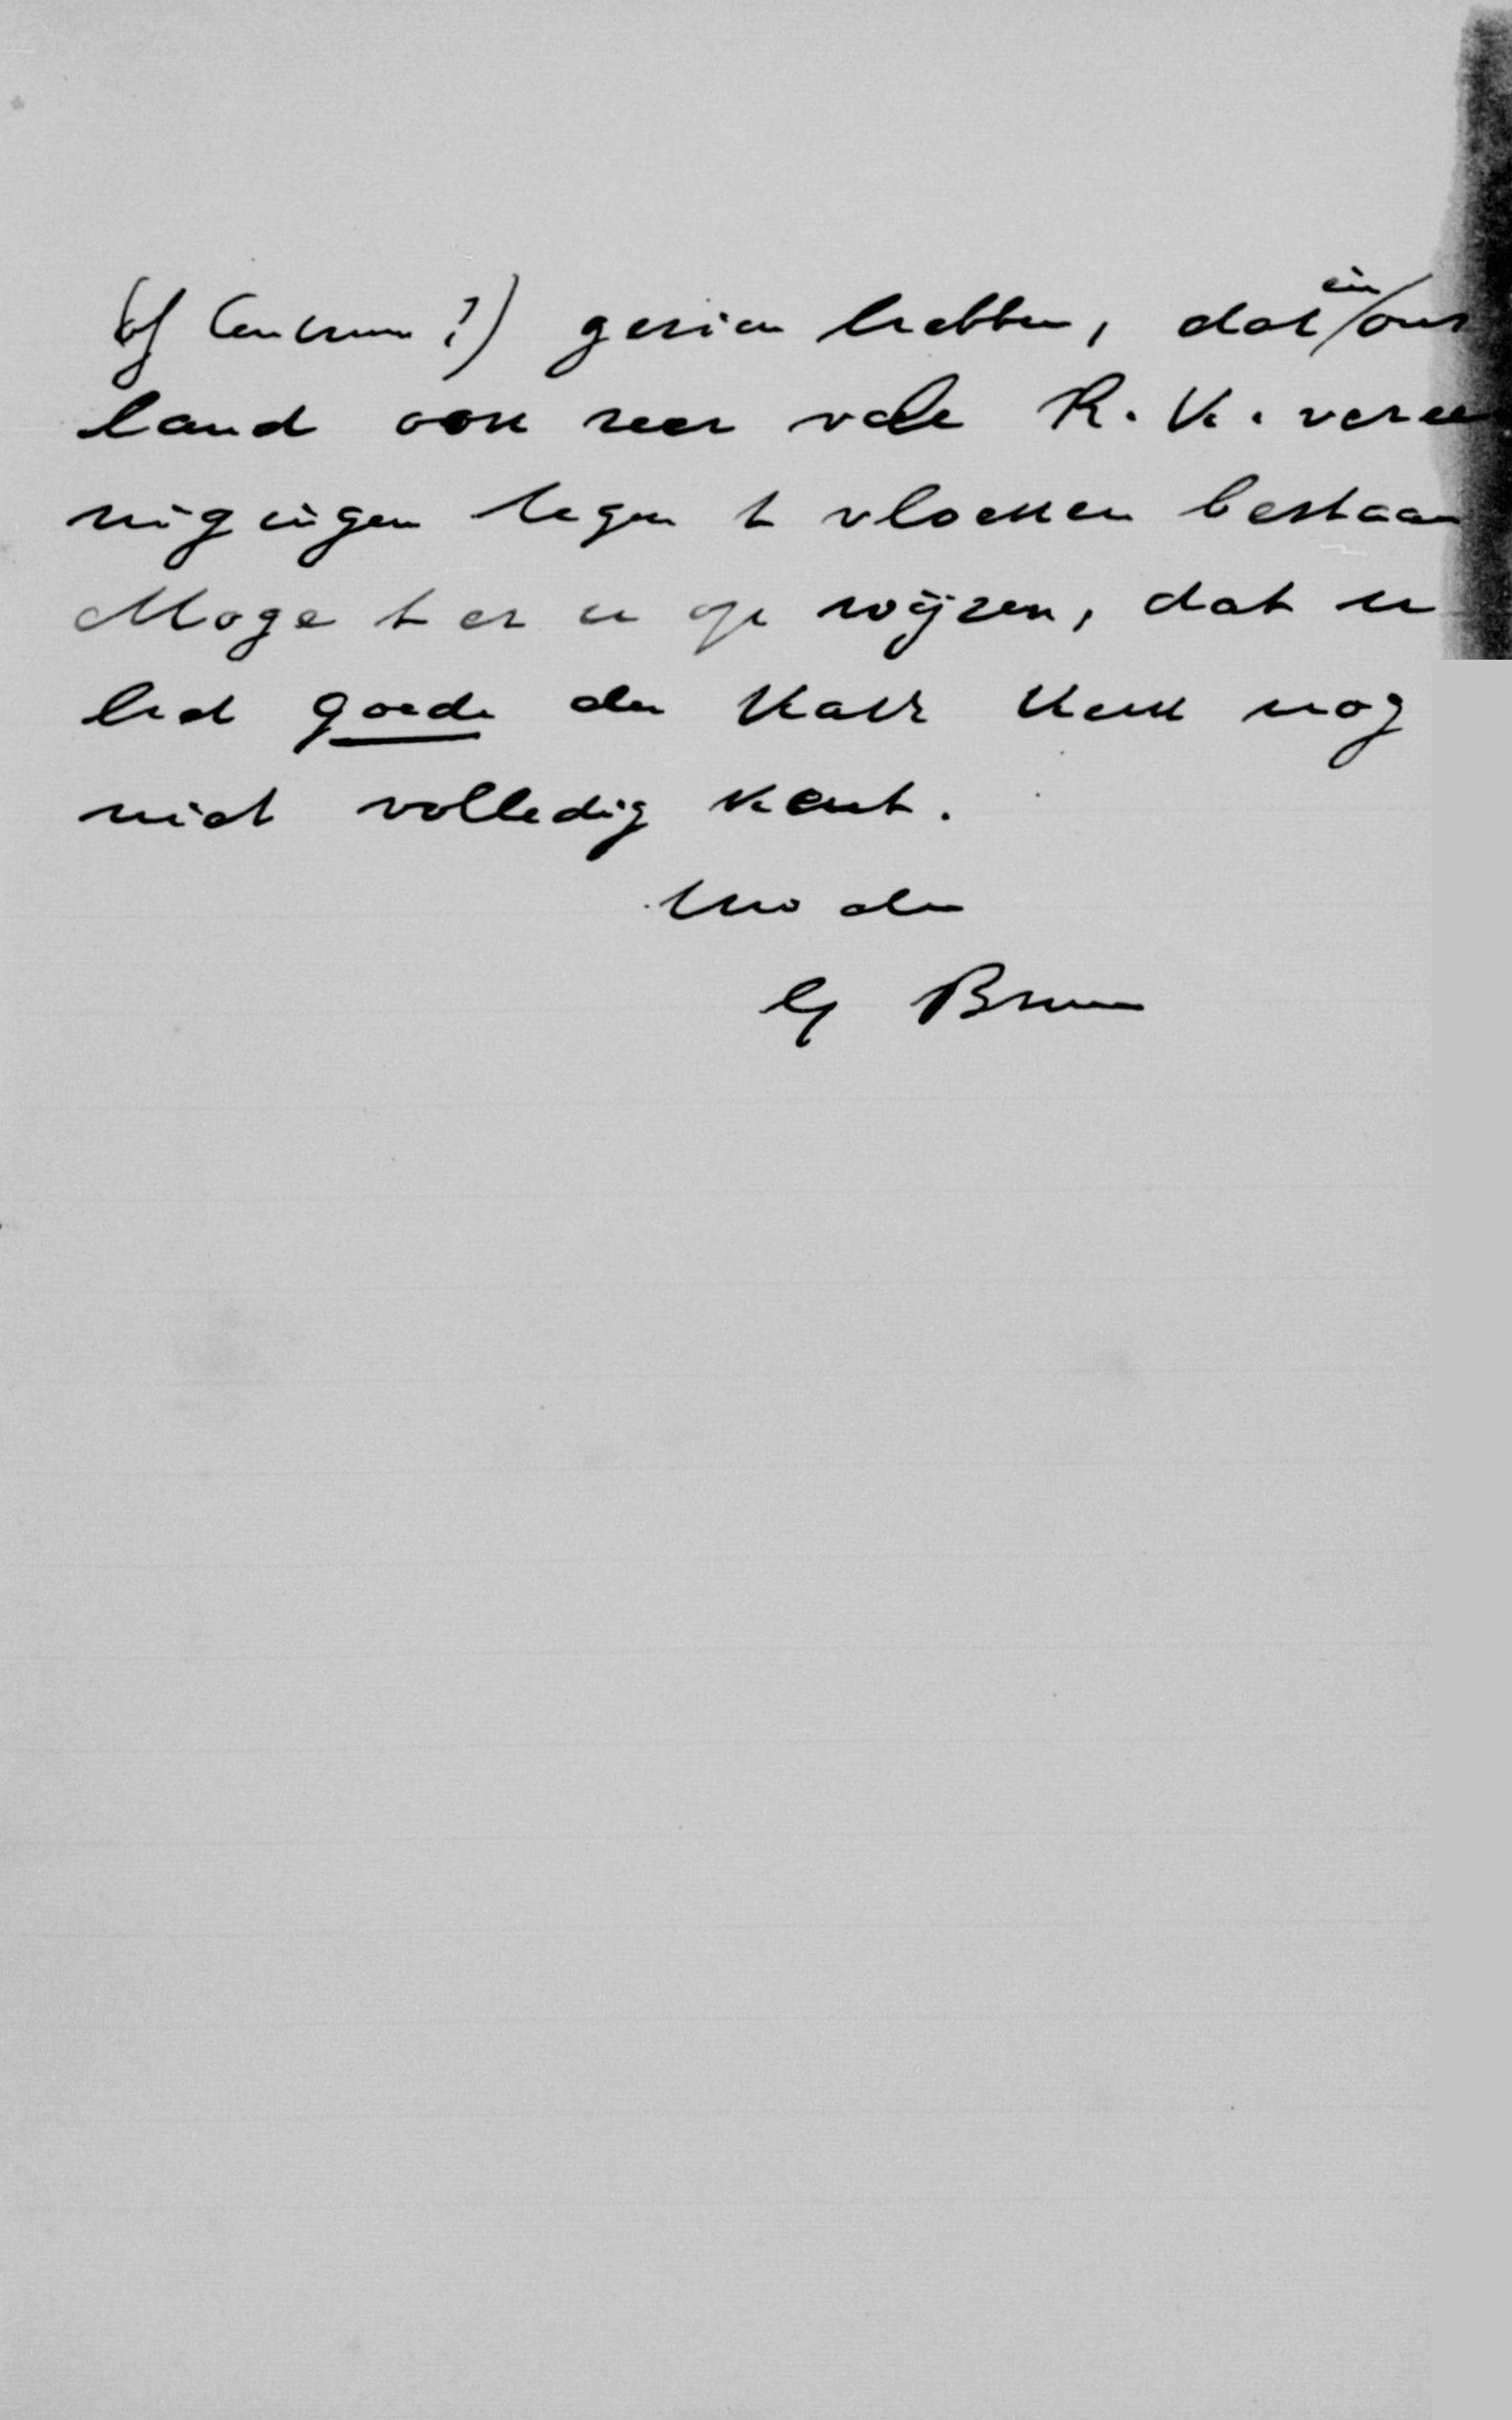 (of Centrum?) gezien hebben, dat in ons
land ook zeer vele R. K. veree
nigingen tegen t vloeken bestaan
Moge t er u op wijzen, dat u
het goede der Kath Kerk nog
niet volledig kent.
Uw dw
G Brom